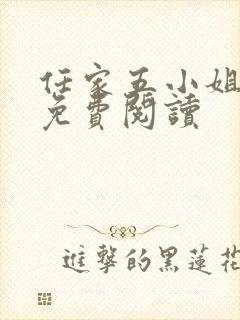 任家五小姐
免費閱讀
進擊的黑蓮花